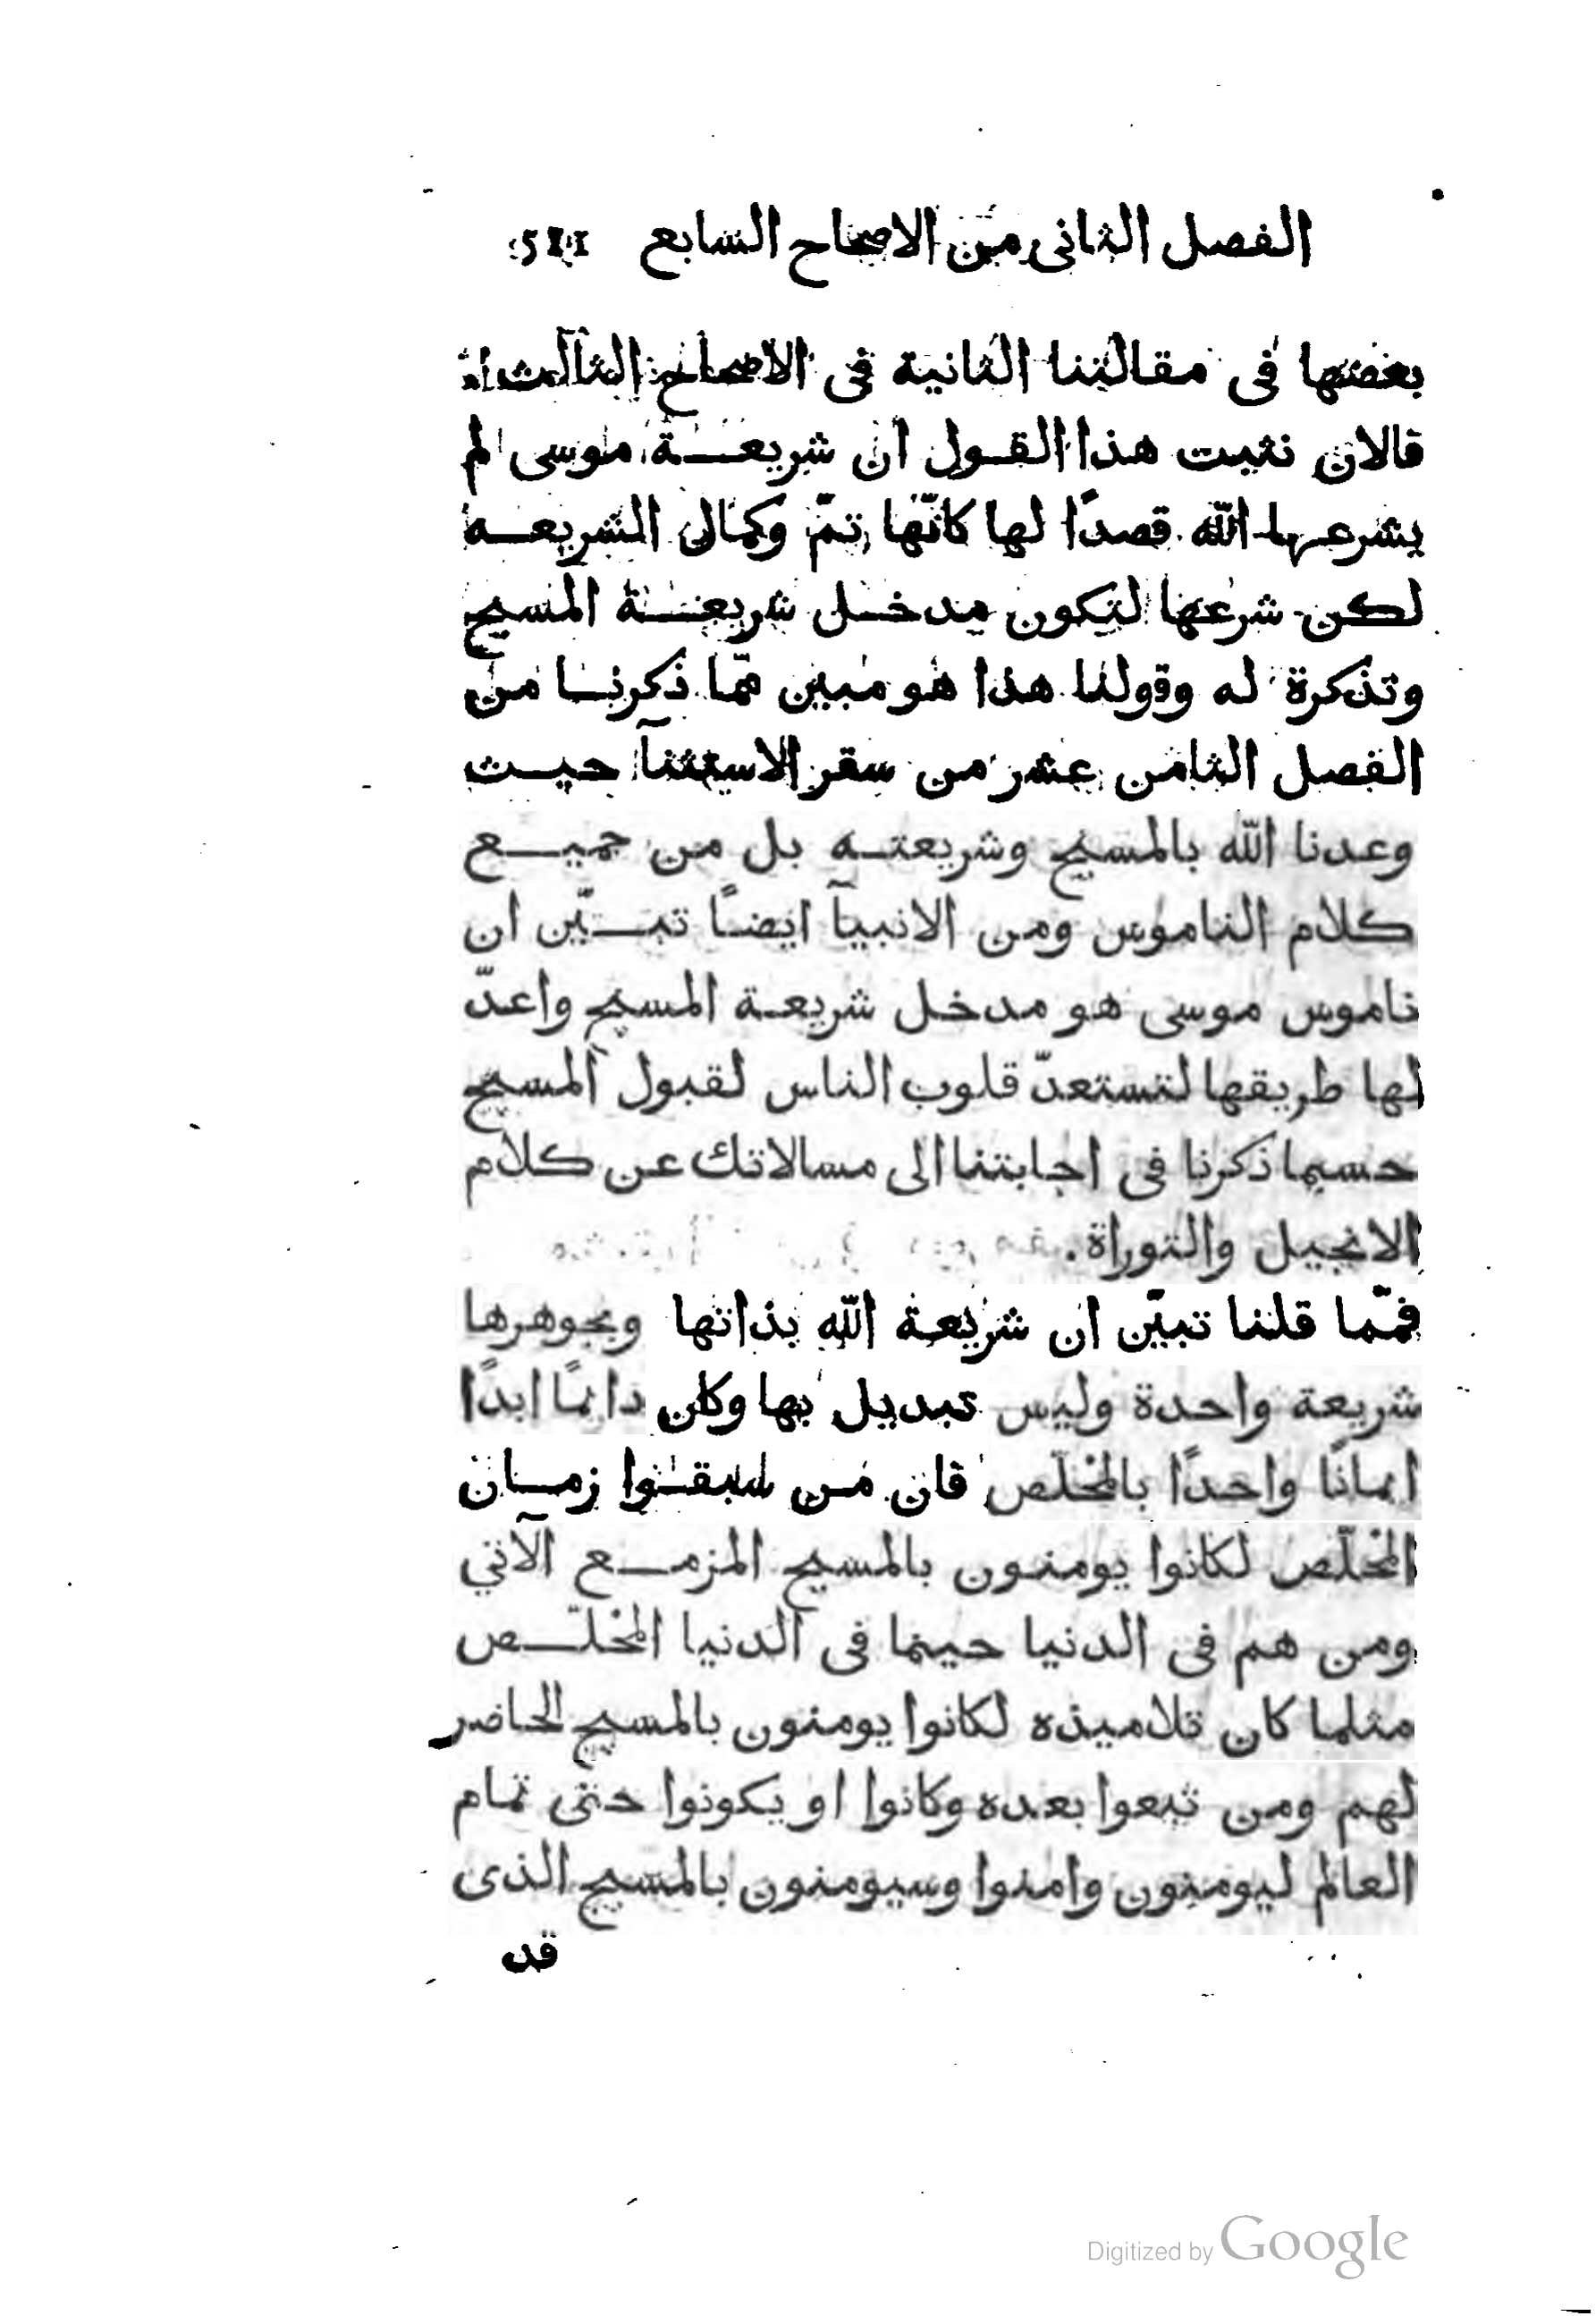 الفصل الثانى من الاصحاح السابع
بعضها فى مقالتنا الثانية فى الاصحاح الثالث
فالان نثبت هذا القول ان شريعة موسى لم
يشرعها الله قصدًا لها كانّها تمّ وكمال الشريعه
لكن شرعها لتكون مدخل شريعة المسيح
وتذكرة له وقولنا هذا هو مبين ممّا ذكرنا من
الفصل الثامن عشر من سفر الاستثنآ حيث
وعدنا الله بالمسيح وشريعته بل من جميع
كلام الناموس ومن الانبيآ ايضًا تبيّن ان
ناموس موسى هو مدخل شريعة المسيح واعدّ
لها طريقها لتستعدّ قلوب الناس لقبول المسيح
حسبما ذكرنا فى اجابتنا الى مسالاتك عن كلام
الانجيل والتوراة.
فممّا قلنا تبيّن ان شريعة الله بذاتها وبجوهرها
شريعة واحدة وليس تبديل بها وكان دايمًا ابدًا
ايمانًا واحدًا بالمخلّص فان من سبقوا زمان
المخلّص لكانوا يومنون بالمسيح المزمع الآتي
ومن هم فى الدنيا حينما فى الدنيا المخلّص
مثلما كان تلاميذه لكانوا يومنون بالمسيح الحاضر
لهم ومن تبعوا بعده وكانوا او يكونوا حتى تمام
العالم ليومنون وامنوا وسيومنون بالمسيح الذى
قد
Digitized by Google